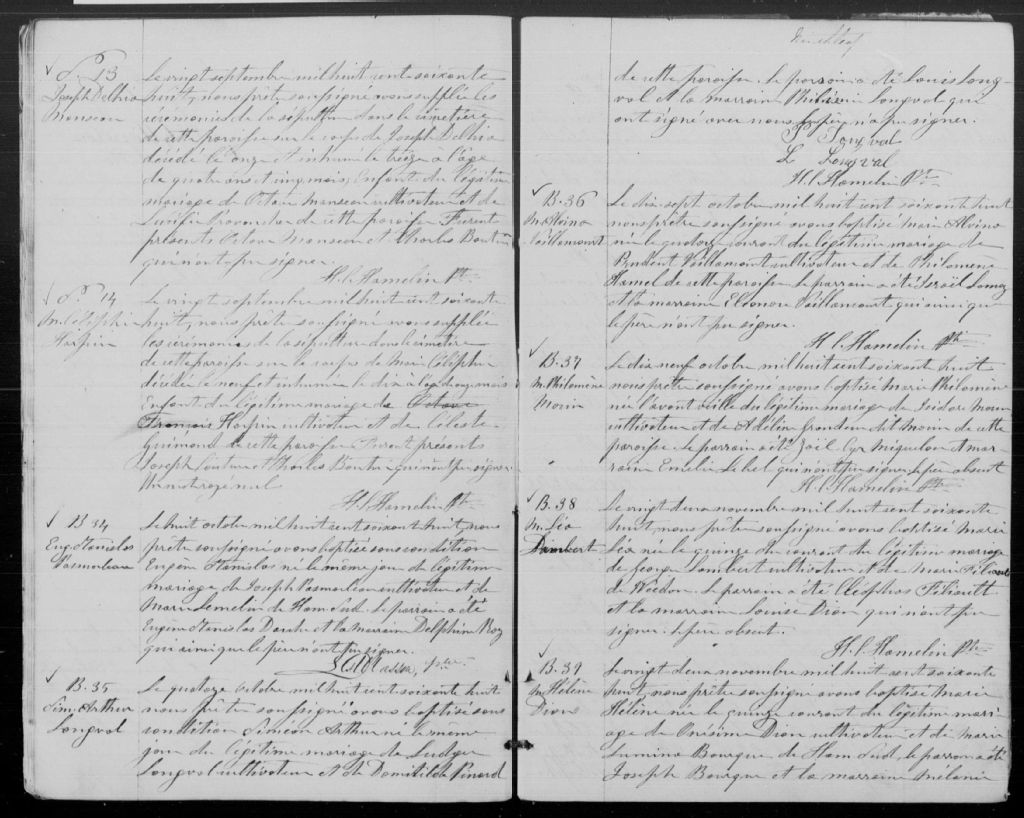 S. 13
Joseph Delhia
Monseau
Le vingt septembre mil huit cent soixante
huit, nous prêtre soussigné avons suppléé les
cérémonies de la sépulture dans le cimetière
de cette paroisse sur le corps de Joseph Delhia
décédé le onze et inhumé le treize à l'âge
de quatre ans et cinq mois, Enfant du légitime
mariage de Octave Monseau cultivateur et de
de cette paroisse Furent
présents Octave Monseau et Charles Boutin
qui n'ont pu signer.
H. C. Hamelin Ptre
S. 14
M. Céliphie
Harpin
Le vingt septembre mil huit cent soixante
huit, nous prêtre soussigné avons suppléé
les cérémonies de la sépulture dans le cimetière
de cette paroisse sur le corps de Marie Céliphie
décédée le neuf et inhumée le dix à l'âge de onze mois
Enfant du légitime mariage de Octave
François Harpin cultivateur et de Céleste
Guémond de cette paroisse Furent présents
Joseph Couture et Charles Boutin qui n'ont pu signer
Un mot rayé nul
H. C. Hamelin Ptre
B 34
Eug. Stanislas
Pasmorleau
Le huit octobre mil huit cent soixante huit, nous
prêtre soussigné avons baptisé sous condition
Eugène Stanislas né le même jour du légitime
mariage de Joseph Pasmorleau cultivateur et de
Marie Lemelin de Ham Sud. Le parrain a été
Eugène Stanislas Darche et la marraine Delphine Roy
qui ainsi que le père n'ont pu signer.
Ptre
B. 35
Sim. Arthur
Longval
Le quatorze octobre mil huit cent soixante huit
nous prêtre soussigné avons baptisé sous
condition Siméon Arthur né le même
jour du légitime mariage de Ludger
Longval cultivateur et de Domitilde Pinard
de cette paroisse. Le parrain a été Louis Long-
val et la marraine Philisein Longval qui
ont signé avec nous le père n'a pu signer.
P Longval
L Longval
H. C. Hamelin Ptre
B. 36
M. Alvina
Vaillancourt
Le dix-sept octobre mil huit cent soixante huit
nous prêtre soussigné avons baptisé Marie Alvina
née le quatorze courant du légitime mariage de
Prudent Vaillancourt cultivateur et de Philomène
Hamel de cette paroisse Le parrain a été Israël
et la marraine Eléonore Vaillancourt qui ainsi que
le père n'ont pu signer.
H. C. Hamelin Ptre
B. 37
M. Philomène
Morin
Le dix neuf octobre mil huit cent soixante huit
nous prêtre soussigné avons baptisé Marie Philomène
née l'avant veille du légitime mariage de Isidore Morin
cultivateur et de Adélia dit Morin de cette
paroisse Le parrain a été Joël Cyr Miquelon et mar-
raine Emélie Lebel qui n'ont pu signer le père absent
H. C. Hamelin Ptre
B. 38
M. Léa
Lambert
Le vingt deux novembre mil huit cent soixante
huit, nous prêtre soussigné avons baptisé Marie
Léa née le quinze du courant du légitime mariage
de George Lambert cultivateur et de Marie
de Weedon. Le parrain a été Cléophas
et la marraine Louise Dion qui n'ont pu
signer. le père absent.
H. C. Hamelin Ptre
B. 39
M. Hélène
Dion
Le vingt deux novembre mil huit cent soixante
huit, nous prêtre soussigné avons baptisé Marie
Hélène née le quinze courant du légitime mari-
age de Onésime Dion cultivateur et de Marie
Lumina Bourque de Ham Sud, le parrain a été
Joseph Bourque et la marraine Mélanie